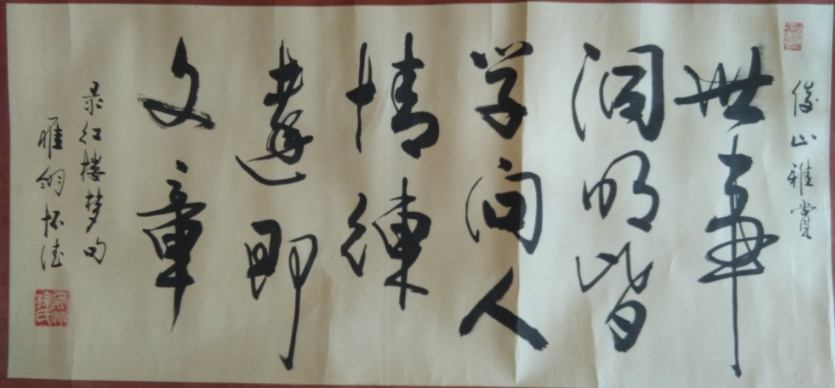 俊山雅赏
世事
洞明皆
学问人
情练
达即
文章
录红楼梦句
雁翎怀德